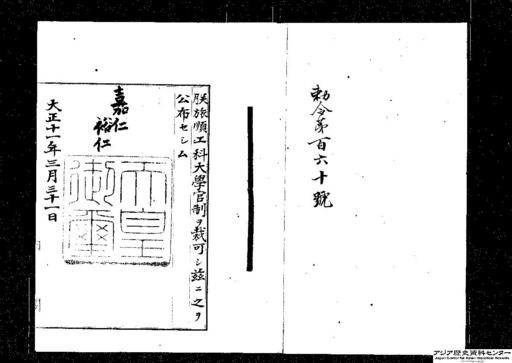 勅令第百六十號
朕旅順工科大學官制ヲ裁可シ茲ニ之ヲ
公布セシム
嘉仁
裕仁
天皇
御璽
大正十一年三月三十一日
アジア歴史資料センター
Japan Center for Asian Historical Records